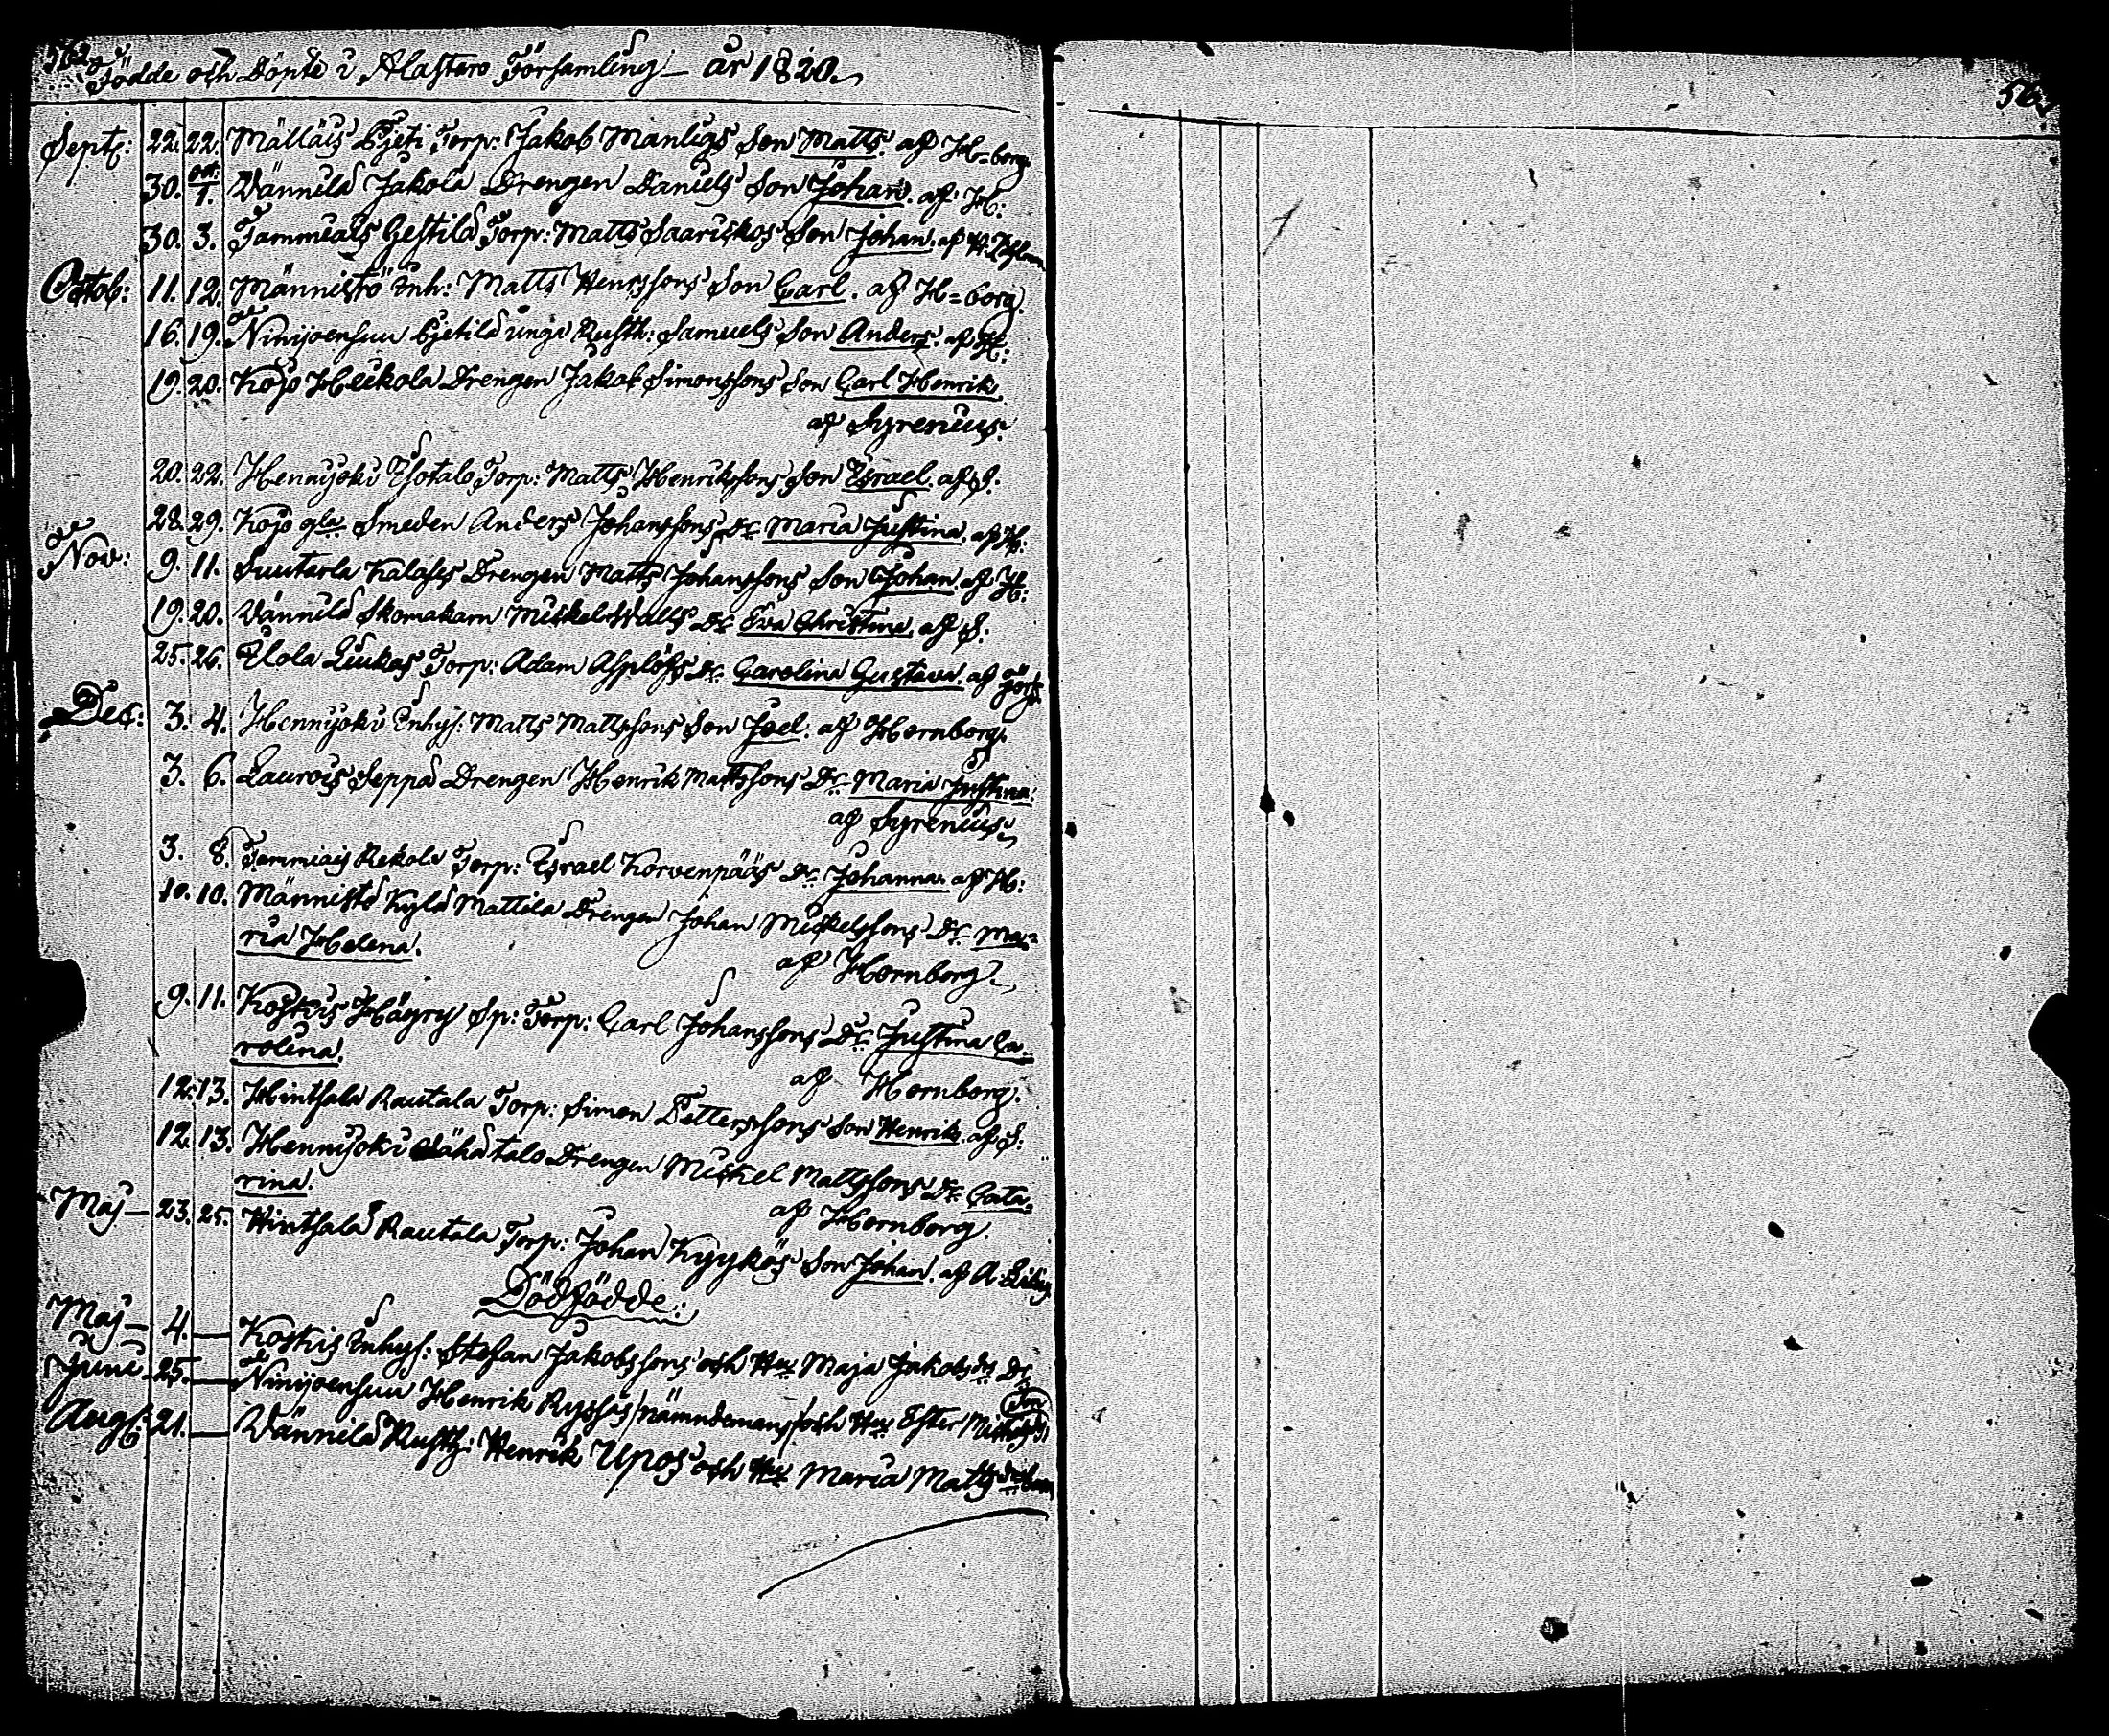 562.
Födde och Döpte i Alastaro Församling år 1820.
Sept: 22. 22. Mälläis Ejeti Torp: Jakob Manligs Son Matts. af H=borg.
30. oct: 1. Vännilä Jakola Drengen Daniels Son Johan. af H:
30. 3. Tammiais Torp: Matts Saariskos Son Johan. af
Octob: 11. 12. Männistö Inh: Matts Henrssons Son Carl. af H=borg.
16. 19. Ninijoensuu Ejetilä unga Rusth: Samuels Son Anders. af H:
19. 20. Köjo Heikola Drengen Jakob Simonssons Son Carl Henrik
af Syrenius.
20. 22. Hennijoki Isotalo Torp: Matts Henrikssons Son Israel. af S.
28. 29. Köjo gla Smeden Anders Johanssons Dr Maria Justina. af H:
Nov: 9. 11. Suutarla Kalases Drengen Matts Johanssons Son Johan. af H:
19. 20. Vännilä Skomakarn Mickel Walls Dr Eva Christina. af S.
25. 26. Ilola Liukas Torp: Adam Asplöfs Dr Carolina Gustava. af
Dec: 3. 4. Hennijoki Inhys: Matts Mattssons Son Joel. af Hornborg.
3. 6. Laurois Seppä Drengen Henrik Mattssons Dr Maria Justina.
af Syrenius.
3. 8. Tammiais Rekola Torp: Israel Korvenpääs Dr Johanna. af H:
10. 10. Männistö Kylä Mattila Drengen Johan Mickelssons Dr Ma=
ria Helena.
af Hornborg.
9. 11. Koskis Häyry Sp: Torp: Carl Johanssons Dr Justina Ca=
rolina.
af Hornborg.
12. 13. Hintsala Rautala Torp: Simon Petterssons Son Henrik. af S:
12. 13. Hennijoki Vähä talo Drengen Mickel Mattssons Dr Cata=
rina.
af Hornborg.
Maj — 23. 25. Hintsala Rautala Torp: Johan Kyykös Son Johan. af A:
Dödfödde:
Maj — 4. — Koskis Inhys: Stefan Jakobssons och Hu Maja Jakobsdrs Dr
Juni 25. — Ninijoensuu Henrik Ryssäs /nämndemans/ och Hu Ester Michelsdrs Son
Aug: 21. — Vännilä Rusth: Henrik Upos och Hu Maria Mattsdrs barn